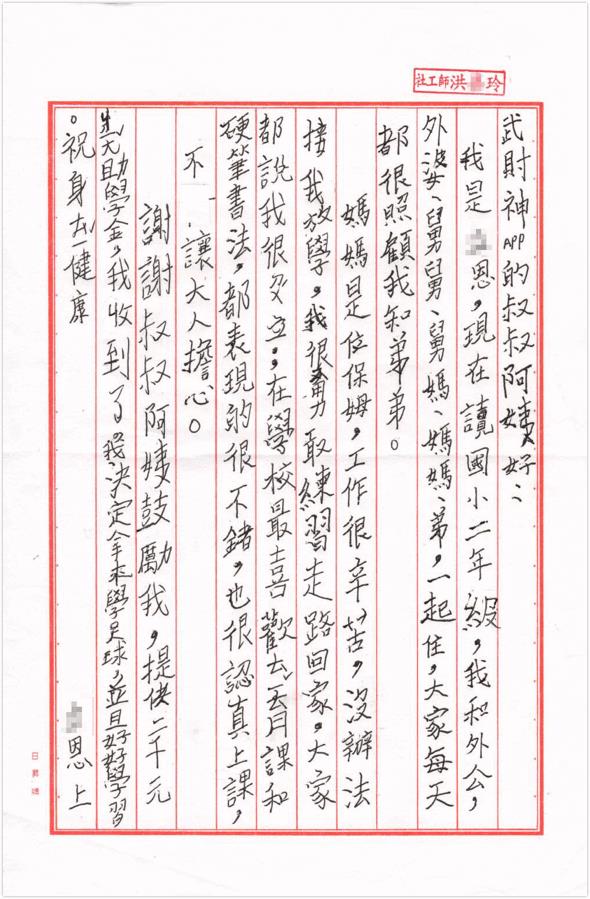 社工師洪玲
武財神APP的叔叔阿姨好：
我是恩，現在讀國小二年級，我和外公，
外婆、舅舅、舅媽、媽媽、弟，一起住，大家每天
都很照顧我和弟弟。
媽媽是位保姆，工作很辛苦，沒辦法
接我放學，我很勇敢練習走路回家，大家
都說我很獨立，在學校最喜歡去課和
硬筆書法，都表現的很不錯，也很認真上課，
不讓大人擔心。
謝謝叔叔阿姨鼓勵我，提供二千元
助學金，我收到了我決定拿來學足球，並且好好學習
。祝身健康
恩上